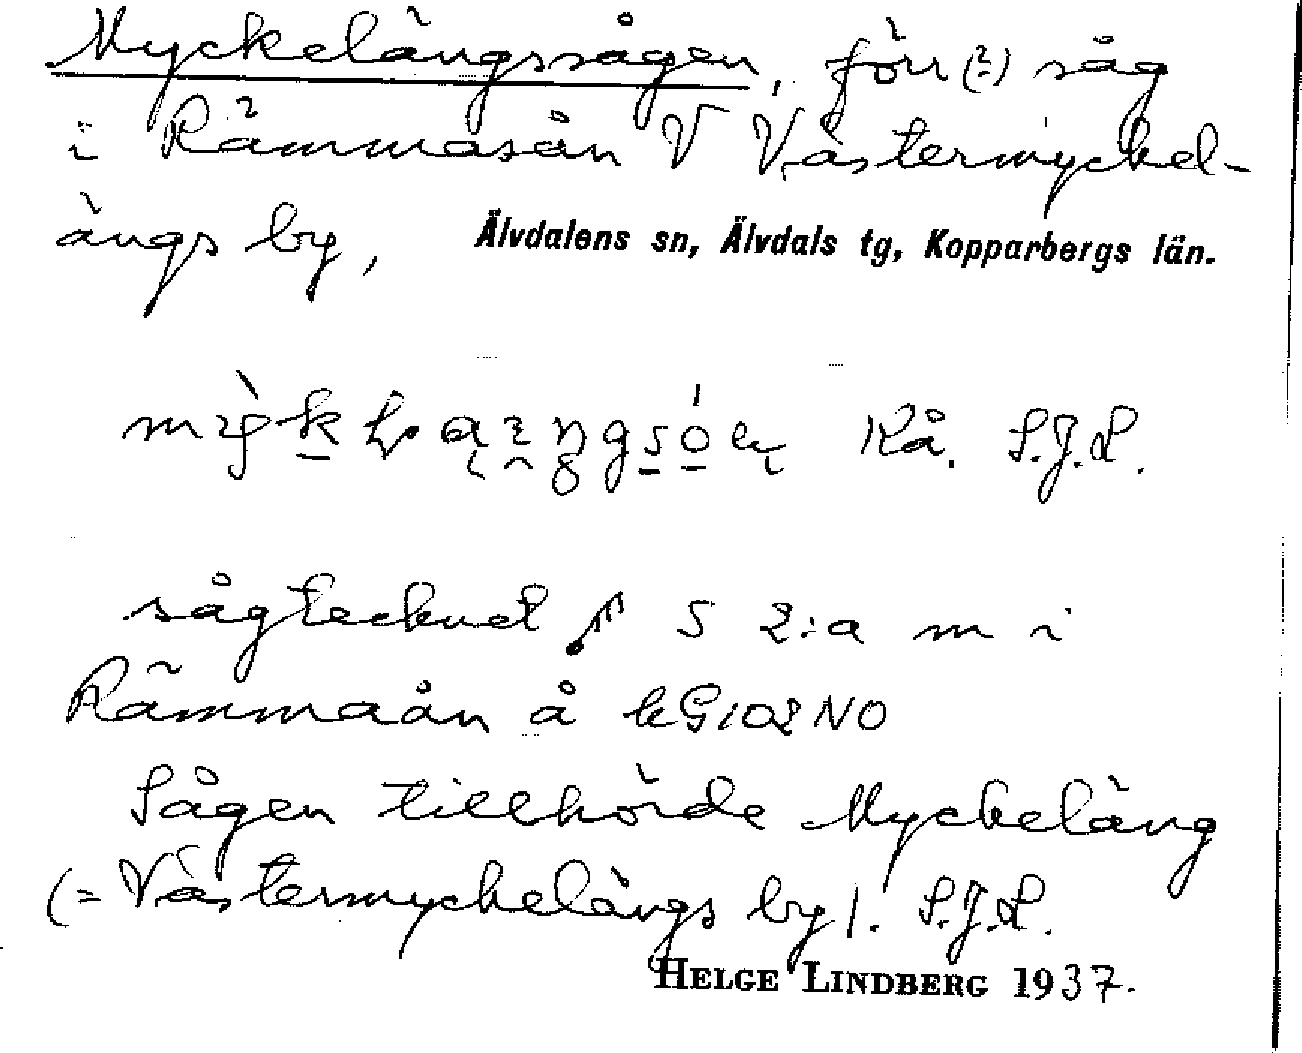 Myckelängssågen, förr (?) såg
i Rämmasån V Västermyckel-
ängs by, Älvdalens sn, Älvdals tg, Kopparbergs län.
Rå. S.J.L.
sågtecknet S 2:a m i
Rämmaån å kG102NO
Sågen tillhörde Myckeläng
(= Västermyckelängs by). S.J.L.
HELGE LINDBERG 1937.